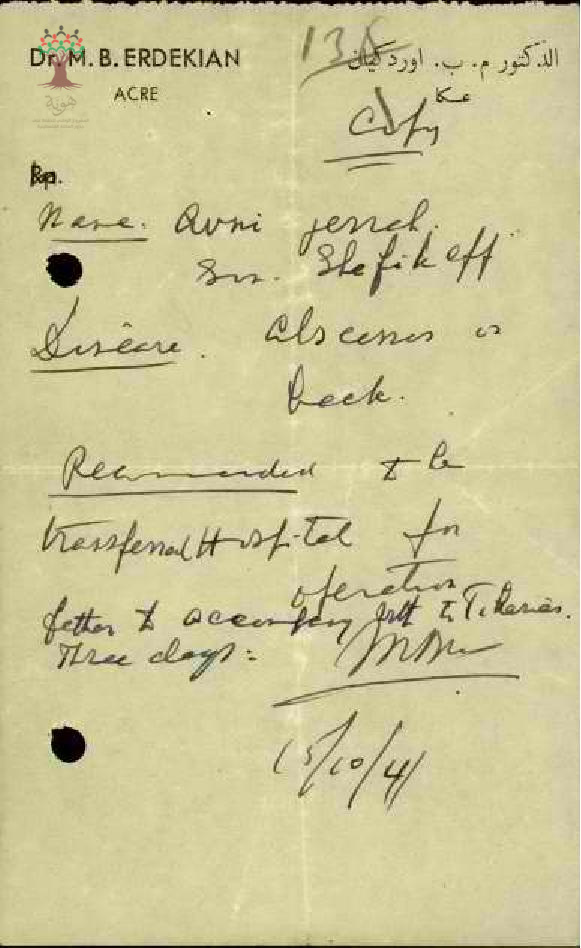 Dr. M. B. ERDEKIAN
ACRE
الدكتور م. ب. اوردكيان
عكا
138
Copy
Rp.
Name. Avni Jerrah.
Son. Shefik eff
Disease. Abscesses in
back.
Recommended to be
transferred Hospital for
operation
father to accompany to Tiberias.
Three days.
15/10/41